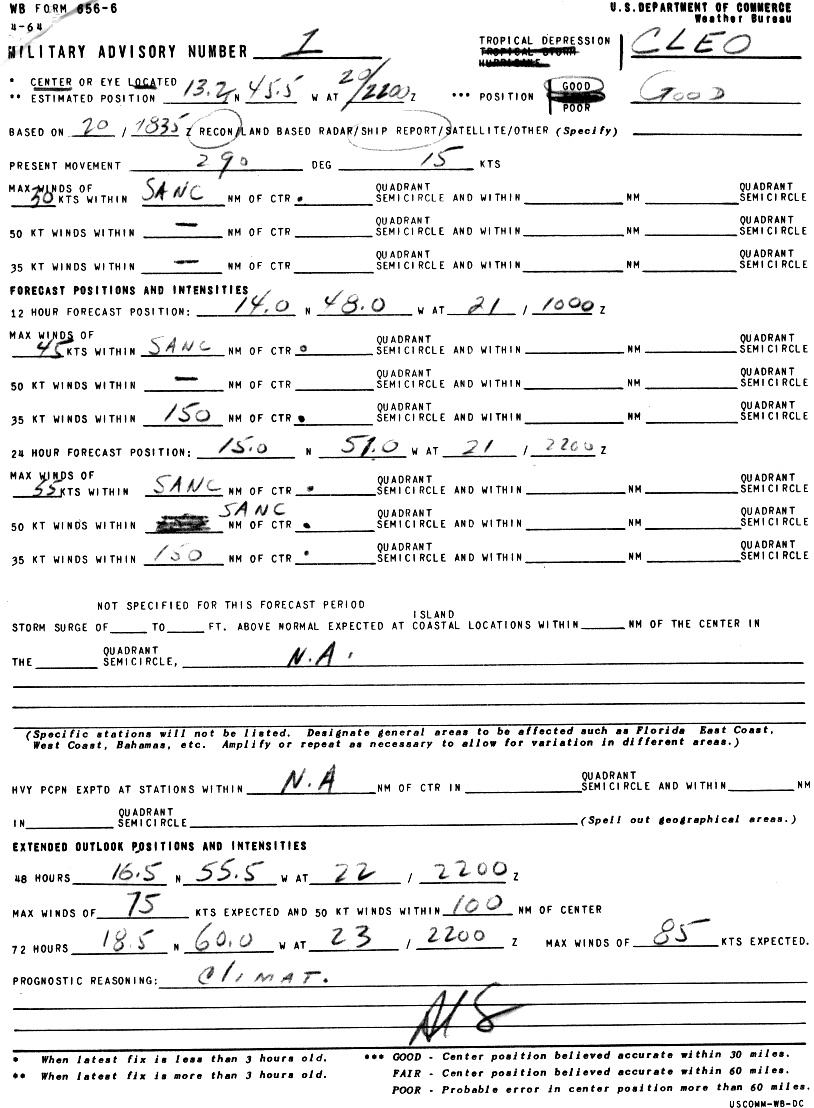 WB FORM 656-6
U.S. DEPARTMENT OF COMMERCE
4-64
Weather Bureau
MILITARY ADVISORY NUMBER 1 TROPICAL DEPRESSION CLEO
TROPICAL STORM
HURRICANE
* CENTER OR EYE LOCATED
** ESTIMATED POSITION 13.2 N 45.5 W AT 20/2200 Z *** POSITION GOOD Good
POOR
BASED ON 20 / 1835 Z RECON/LAND BASED RADAR/SHIP REPORT/SATELLITE/OTHER (Specify)
PRESENT MOVEMENT 290 DEG 15 KTS
MAX WINDS OF QUADRANT QUADRANT
30 KTS WITHIN SANC NM OF CTR. SEMICIRCLE AND WITHIN NM SEMICIRCLE
QUADRANT QUADRANT
50 KT WINDS WITHIN — NM OF CTR SEMICIRCLE AND WITHIN NM SEMICIRCLE
QUADRANT QUADRANT
35 KT WINDS WITHIN — NM OF CTR SEMICIRCLE AND WITHIN NM SEMICIRCLE
FORECAST POSITIONS AND INTENSITIES
12 HOUR FORECAST POSITION: 14.0 N 48.0 W AT 21 / 1000 Z
MAX WINDS OF QUADRANT QUADRANT
45 KTS WITHIN SANC NM OF CTR. SEMICIRCLE AND WITHIN NM SEMICIRCLE
QUADRANT QUADRANT
50 KT WINDS WITHIN — NM OF CTR SEMICIRCLE AND WITHIN NM SEMICIRCLE
QUADRANT QUADRANT
35 KT WINDS WITHIN 150 NM OF CTR. SEMICIRCLE AND WITHIN NM SEMICIRCLE
24 HOUR FORECAST POSITION: 15.0 N 51.0 W AT 21 / 2200 Z
MAX WINDS OF QUADRANT QUADRANT
55 KTS WITHIN SANC NM OF CTR. SEMICIRCLE AND WITHIN NM SEMICIRCLE
SANC QUADRANT QUADRANT
50 KT WINDS WITHIN NM OF CTR. SEMICIRCLE AND WITHIN NM SEMICIRCLE
QUADRANT QUADRANT
35 KT WINDS WITHIN 150 NM OF CTR. SEMICIRCLE AND WITHIN NM SEMICIRCLE
NOT SPECIFIED FOR THIS FORECAST PERIOD
ISLAND
STORM SURGE OF TO FT. ABOVE NORMAL EXPECTED AT COASTAL LOCATIONS WITHIN NM OF THE CENTER IN
QUADRANT
THE SEMICIRCLE, N.A.
(Specific stations will not be listed. Designate general areas to be affected such as Florida East Coast,
West Coast, Bahamas, etc. Amplify or repeat as necessary to allow for variation in different areas.)
QUADRANT
HVY PCPN EXPTD AT STATIONS WITHIN N.A NM OF CTR IN SEMICIRCLE AND WITHIN NM
QUADRANT
IN SEMICIRCLE (Spell out geographical areas.)
EXTENDED OUTLOOK POSITIONS AND INTENSITIES
48 HOURS 16.5 N 55.5 W AT 22 / 2200 Z
MAX WINDS OF 75 KTS EXPECTED AND 50 KT WINDS WITHIN 100 NM OF CENTER
72 HOURS 18.5 N 60.0 W AT 23 / 2200 Z MAX WINDS OF 85 KTS EXPECTED.
PROGNOSTIC REASONING: CLIMAT.
* When latest fix is less than 3 hours old. *** GOOD - Center position believed accurate within 30 miles.
** When latest fix is more than 3 hours old. FAIR - Center position believed accurate within 60 miles.
POOR - Probable error in center position more than 60 miles.
USCOMM-WB-DC